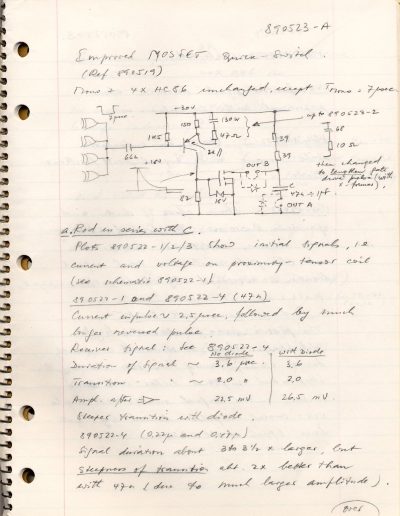 890523-A
Improved MOSFET Quick-Switch.
(Ref 890519)
4x HC86 unchanged, except
+30V
up to 890523-2
150
130Ω
47Ω
1K5
39
68
10Ω
66n
+18V
OUT B
39
then changed
to lengthen
drive pulse (with
82
18V
C
47n - 1µF
OUT A
a. Rod in series with C.
Plots 890522-1/2/3 show initial signals, i.e
current and voltage on proximity-tensor coil
(see schematic 890522-1)
890522-1 and 890522-4 (47n)
Current impulse ~ 2,5 µsec, followed by much
longer reversed pulse
Receiver signal: See 890522-4
No diode with Diode
Duration of signal ~ 3,6 µsec. 3,6
Transition " ~ 2,0 " 2,0
Ampl. after 22,5 mV 26,5 mV
Steeper transition with diode.
890522-4 (0,22µ and 0,47µ)
Signal duration about 3 to 3½ x larger, but
Steepness of transition abt. 2x better than
with 47n (due to much larger amplitude).